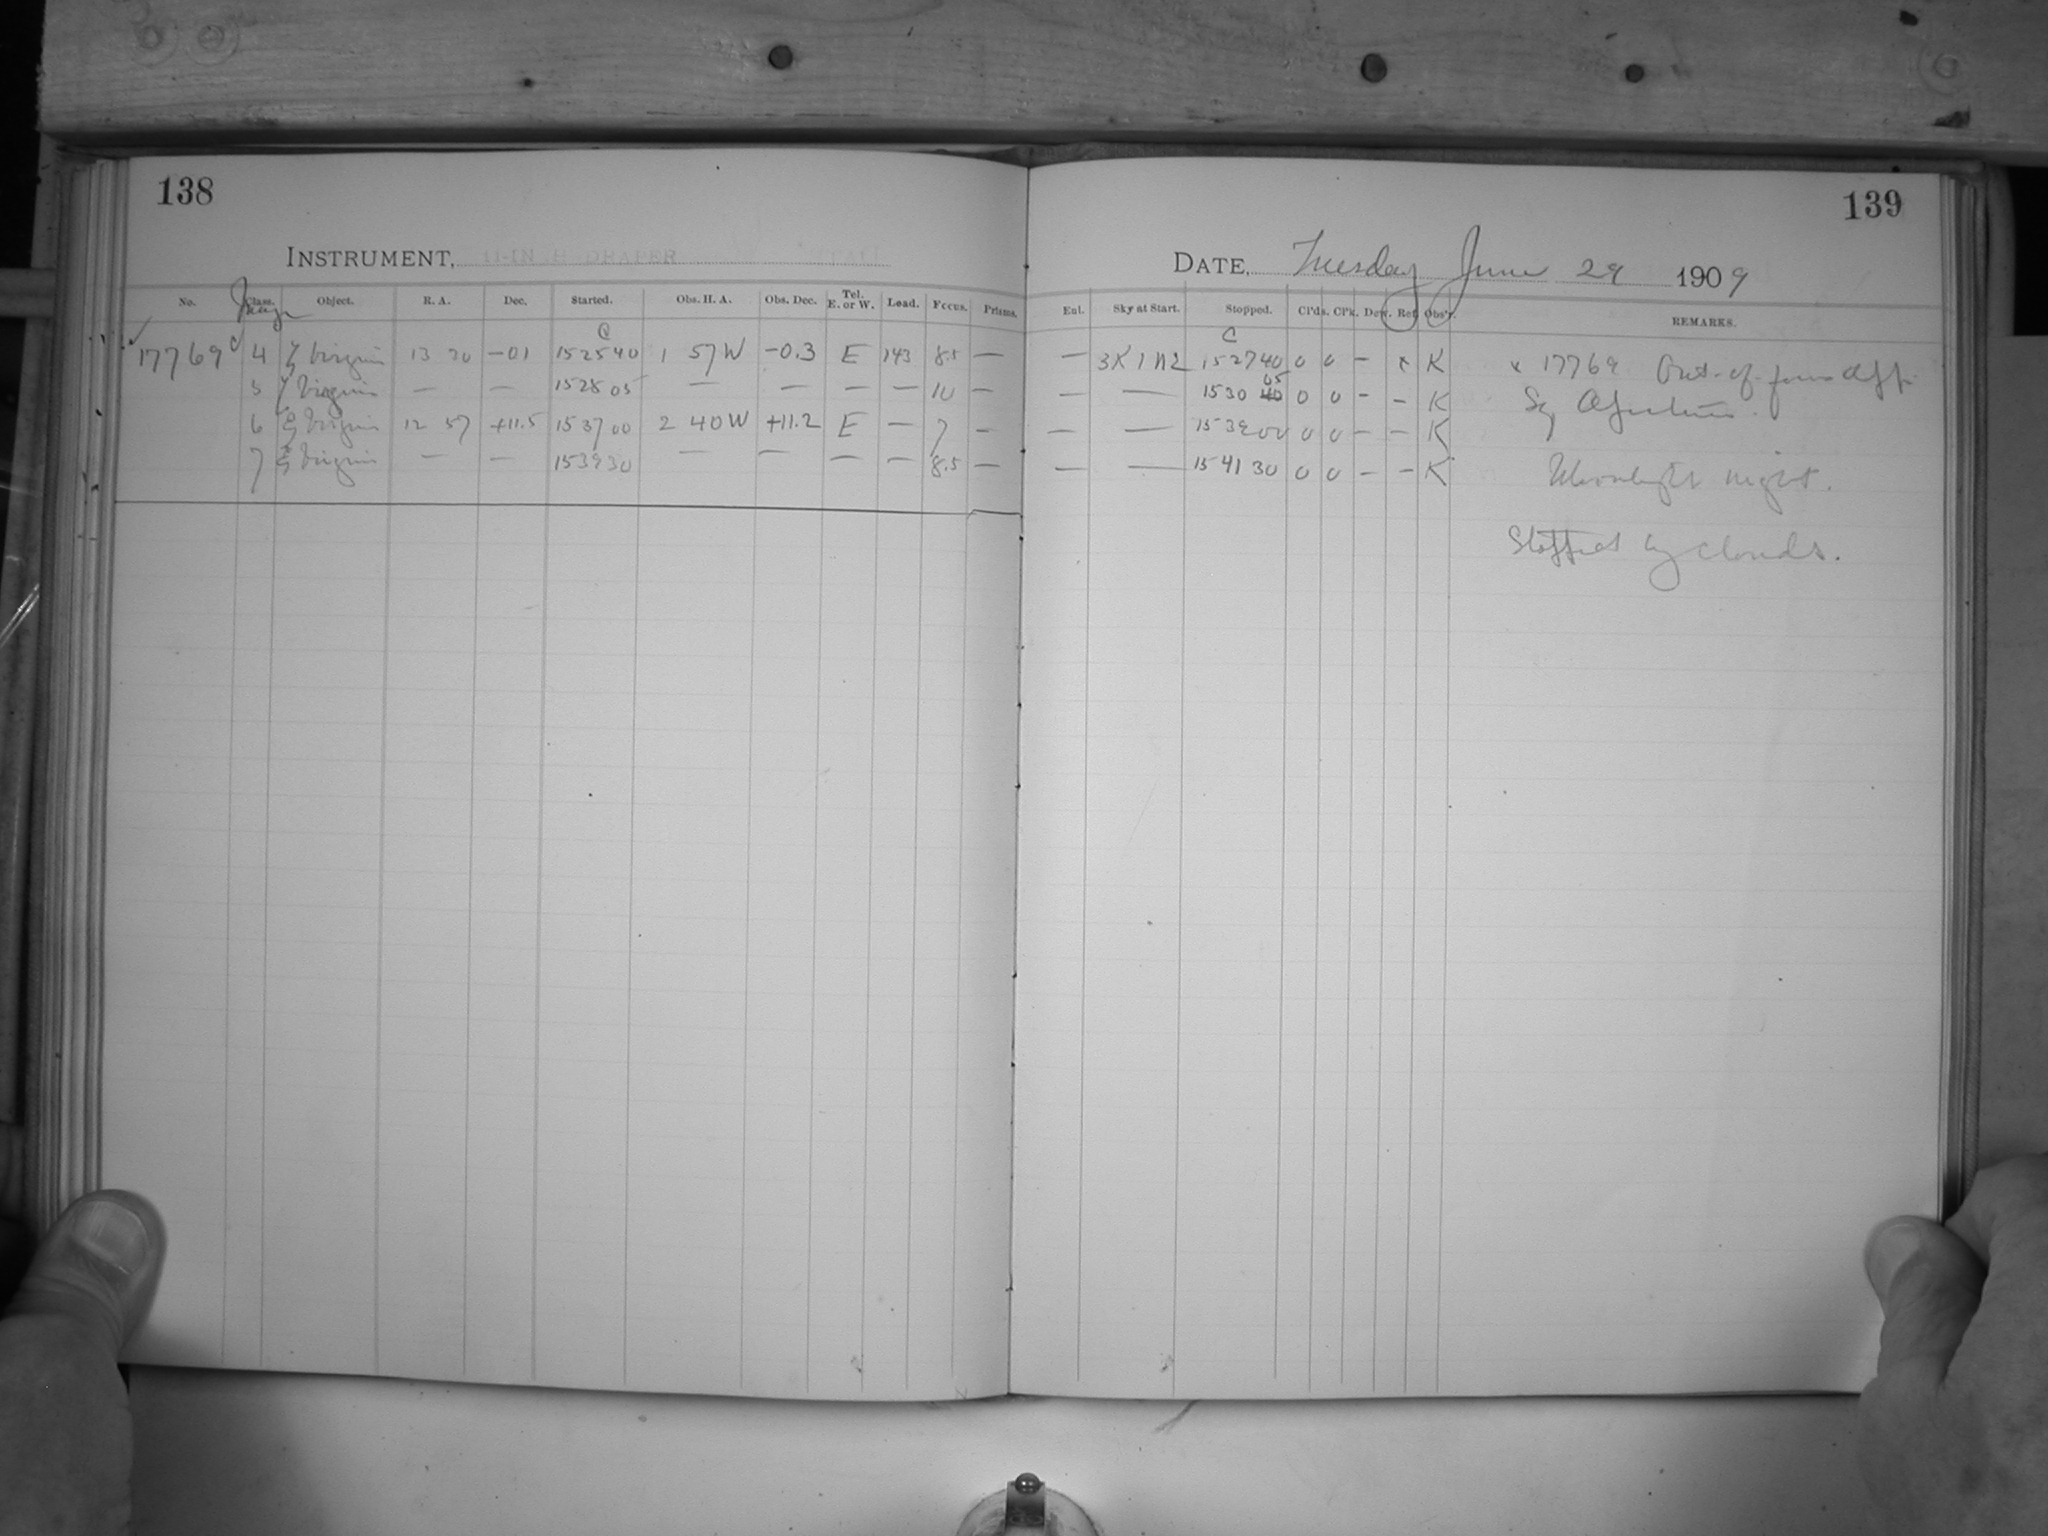 138
139
INSTRUMENT, 11-INCH DRAPER
DATE, Tuesday June 29 1909
No. Class. Object. R. A. Dec. Started. Obs. H. A. Obs. Dec. Tel. E. or W. Load. Focus. Prisms. Enl. Sky at Start. Stopped. Cl'ds. Cl'k. Dew. Ref. Obs'r. REMARKS.
C C
17769 4 ζ Virginis 13 30 -01 152540 1 57W -0.3 E 143 8.5 — — 3K1n2 152740 0 0 - × K × 17769 Out-of-focus
5 ζ Virginis — — 152805 — — — — 10 — — 1530 40 05 0 0 - - K Sq
6 ε Virginis 12 57 +11.5 153700 2 40W +11.2 E — 7 — — — 153900 0 0 - - K
7 ε Virginis — — 153930 — — — — 8.5 — — — 154130 0 0 - - K Moonlight night.
Stopped by clouds.